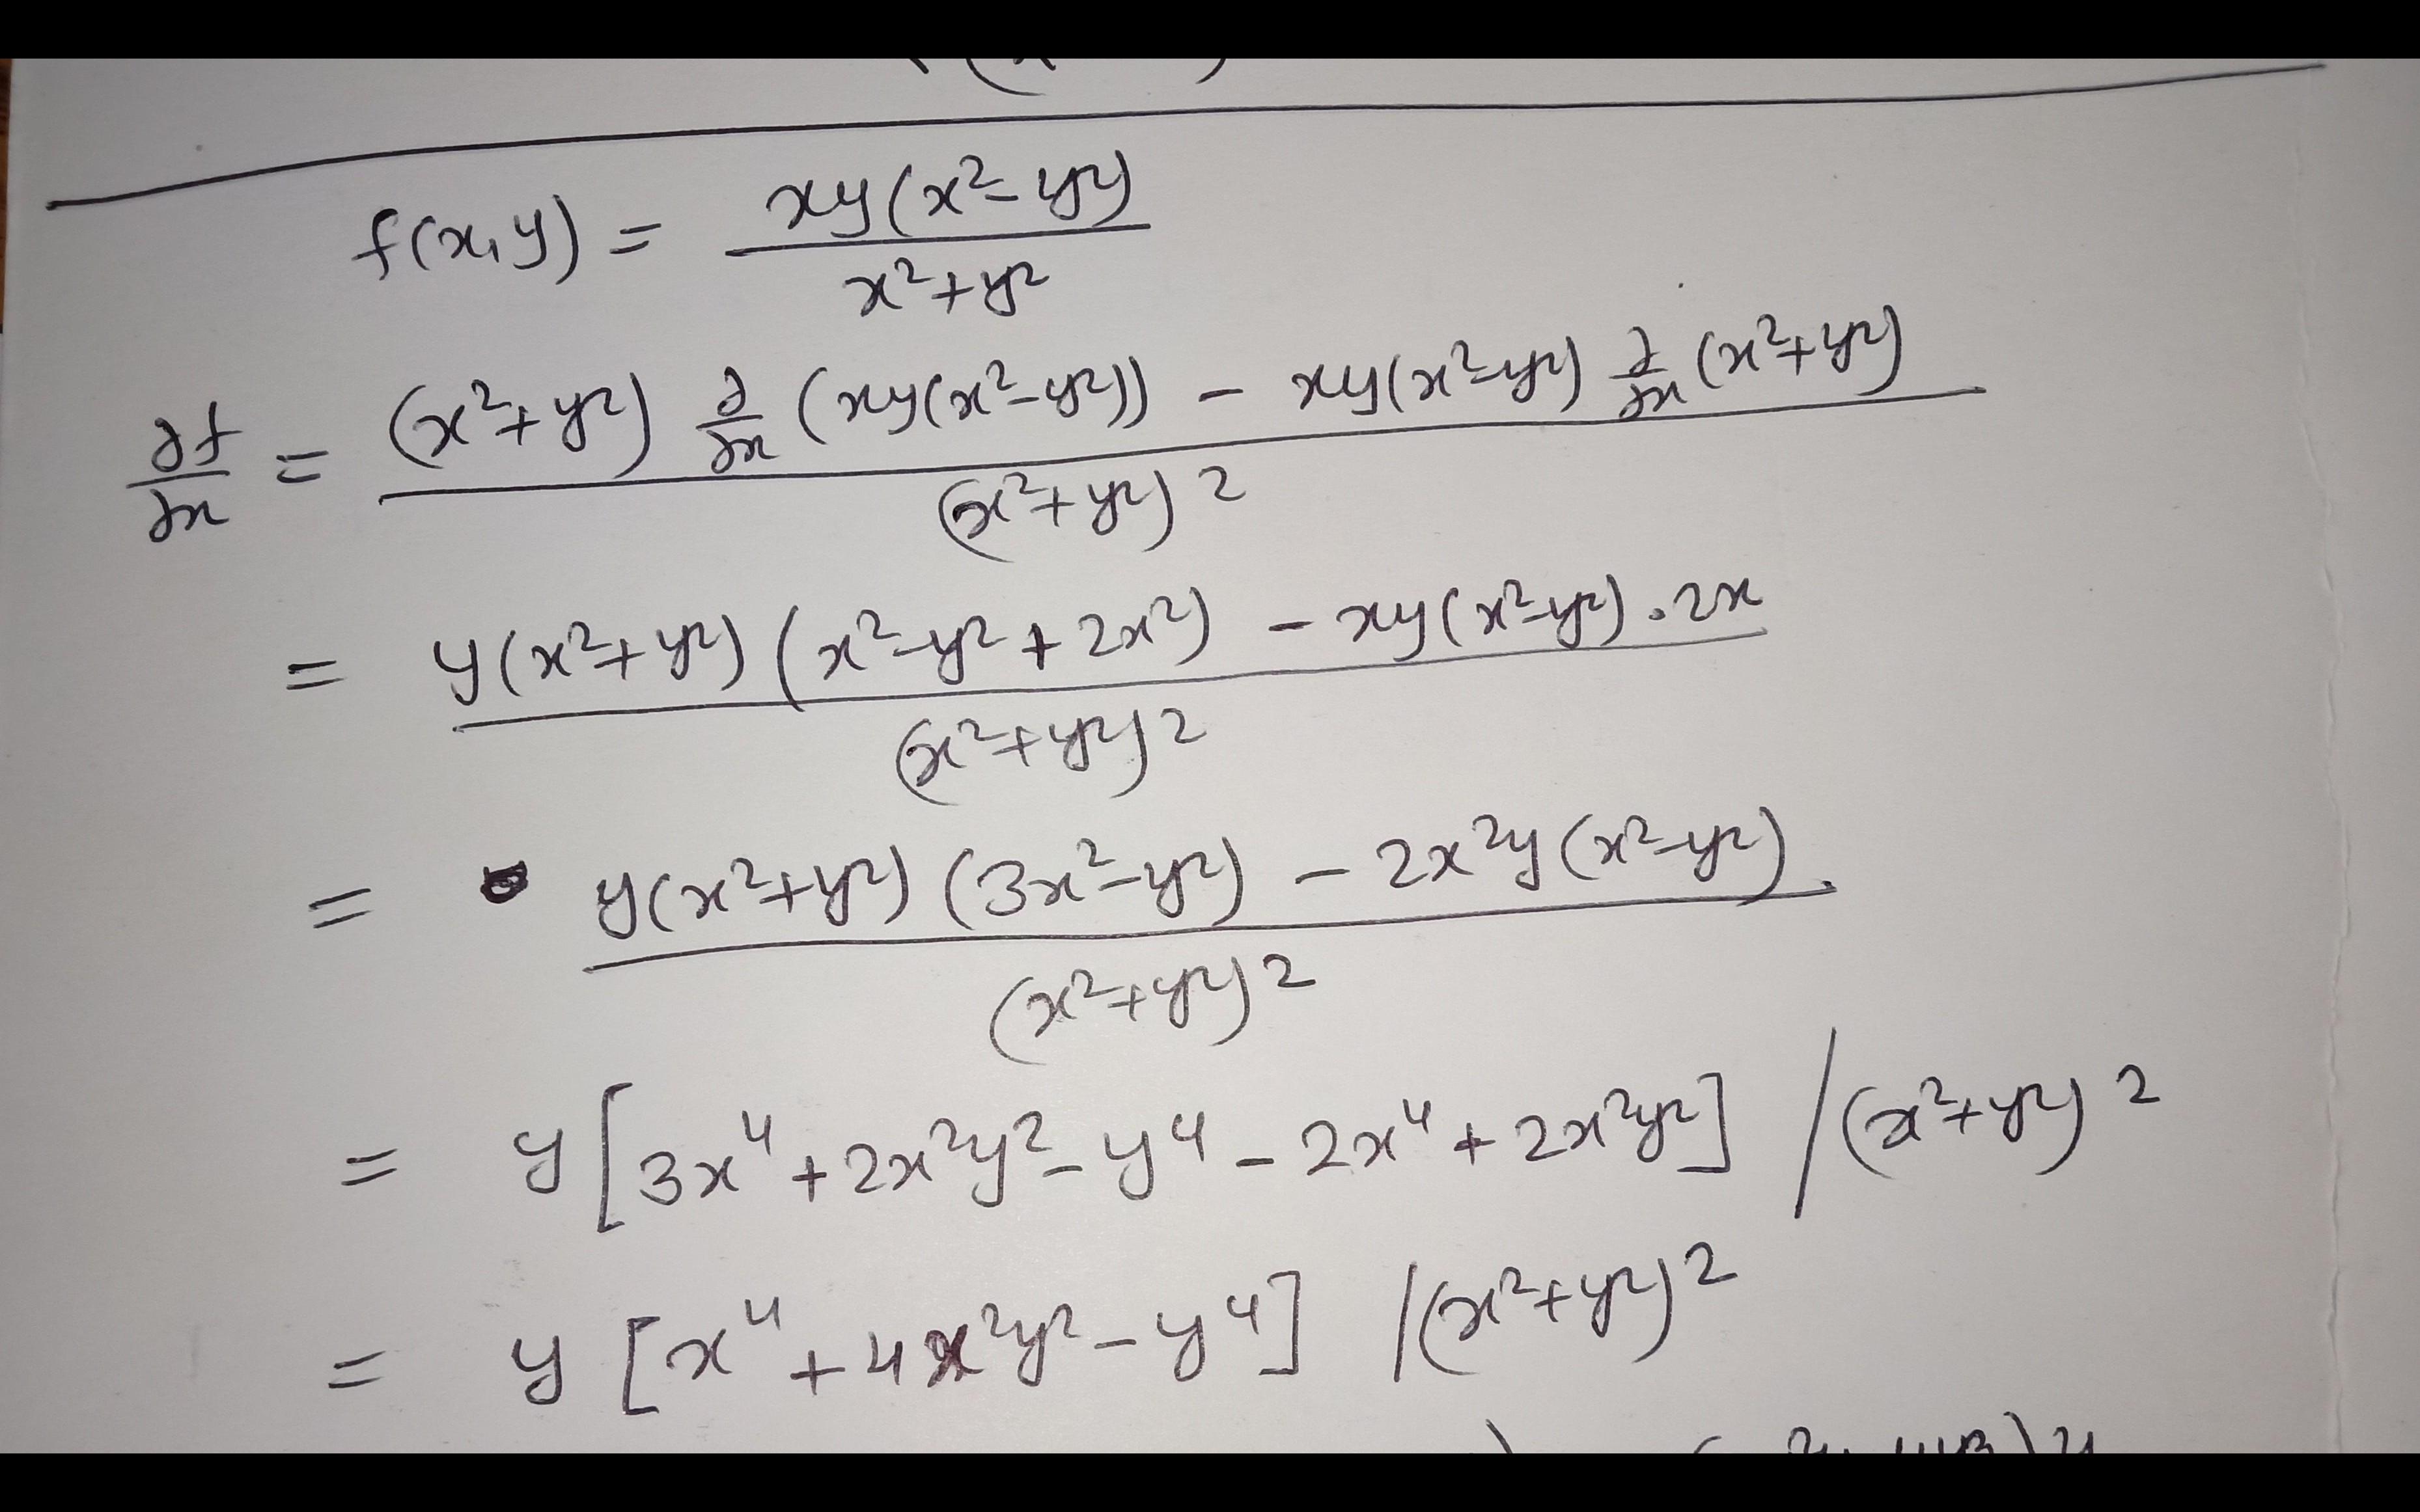 f(x,y) = xy(x²-y²) / x²+y²
∂f/∂x = (x²+y²) ∂/∂x (xy(x²-y²)) - xy(x²-y²) ∂/∂x (x²+y²) / (x²+y²)²
= y(x²+y²) (x²-y²+2x²) - xy(x²-y²).2x / (x²+y²)²
= y(x²+y²) (3x²-y²) - 2x²y(x²-y²) / (x²+y²)²
= y[3x⁴+2x²y²-y⁴-2x⁴+2x²y²] /(x²+y²)²
= y[x⁴+4x²y²-y⁴] /(x²+y²)²